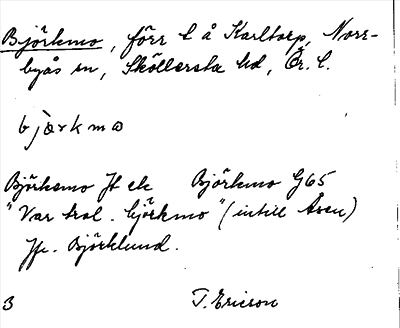 Björkmo, förr l å Karltorp, Norr-
byås sn, Sköllersta hd, Ör. l.
bjærkmω
Björksmo Jf ek Björkmo G65
"Var trol. björkmo" (intill Åsen)
Jfr. Björklund.
3 T. Ericson